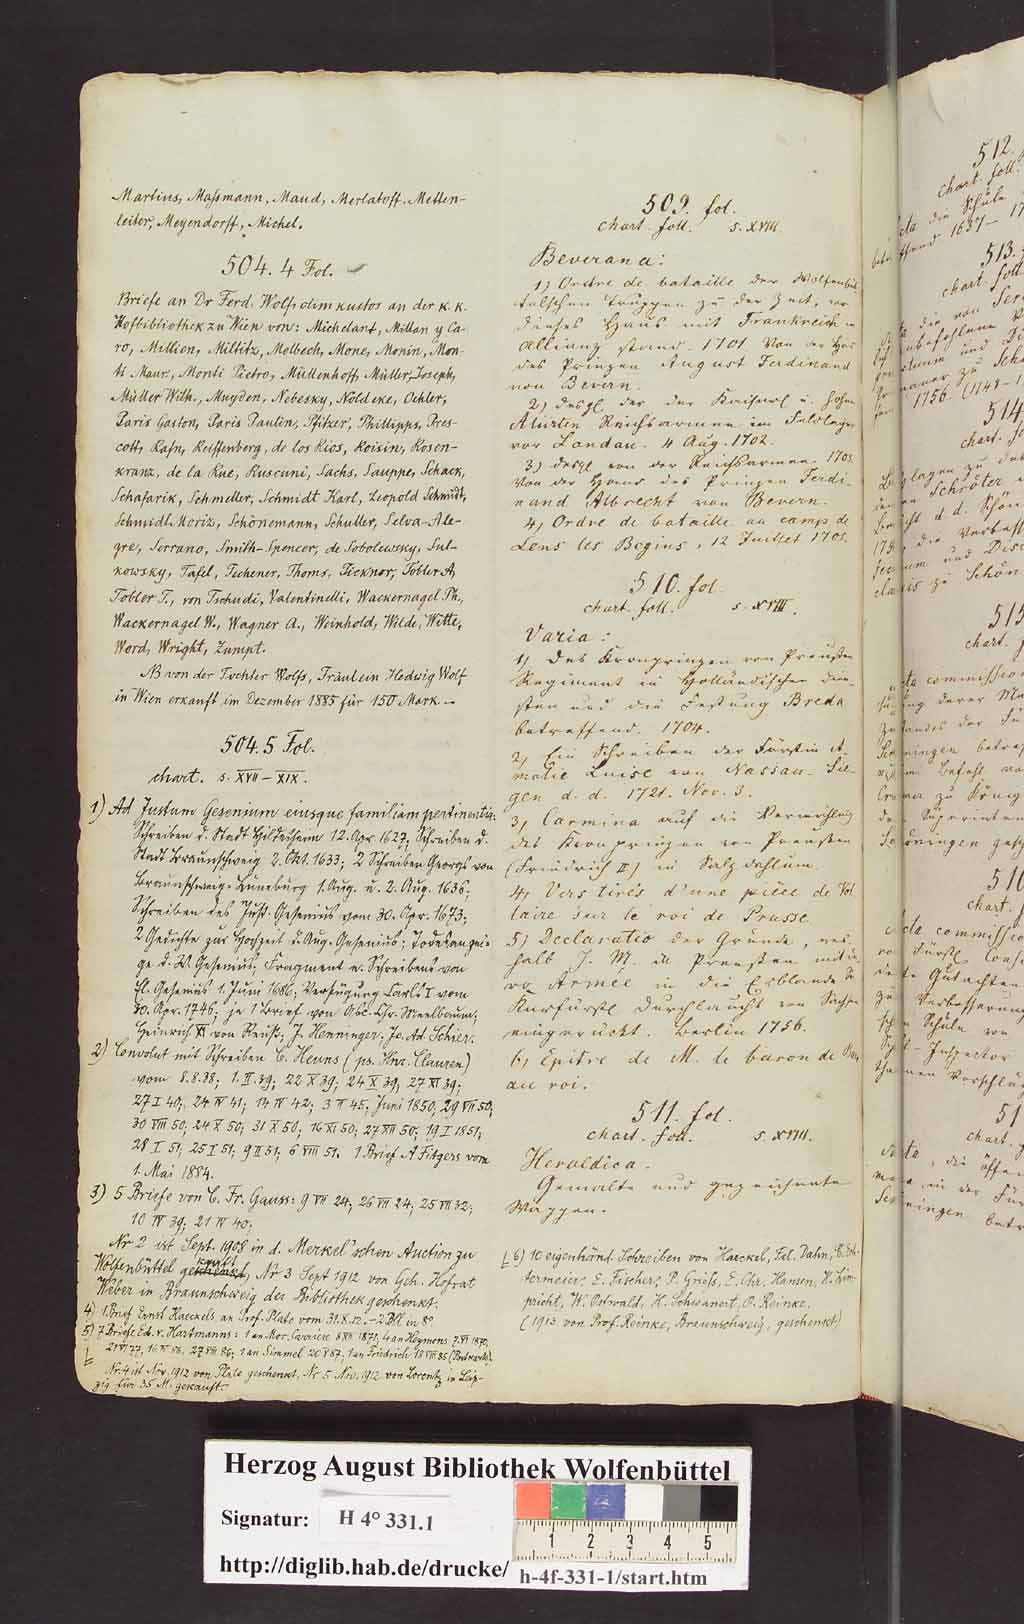 Martius, Maßmann, Maud, Merlatoff. Metten-
leiter, Meyendorff, Michel.
504. 4 Fol.
Briefe an Dr Ferd. Wolf, olim kustos an der K. K.
Hofbibliothek zu Wien von: Michelant, Millan y Ca-
ro, Millien, Miltitz, Molbech, Mone, Monin, Mon-
ti Maur., Monti Pietro, Müllenhoff, Müller, Joseph,
Müller Wilh., Muyden, Nebesky, Nöldeke, Oehler,
Paris Gaston, Paris Paulin, Pfitzer, Phillipps, Pres-
cott, Rafn, Reiffenberg, de los Rios, Roisin, Rosen-
kranz, de la Rue, Ruscuni, Sachs, Sauppe, Schack,
Schafarik, Schmeller, Schmidt Karl, Leopold Schmidt,
Schmidt Moriz, Schönemann, Schuller, Selva-Ale-
gre, Serrano, Smith-Spencer, de Sobolewsky, Sul-
kowsky, Tafel, Techener, Thoms, Ticknor, Tobler A,
Tobler T., von Tschudi, Valentinelli, Wackernagel Ph.,
Wackernagel W., Wagner A., Weinhold, Wilde, Witte,
Word, Wright, Zumpt.
NB von der Tochter Wolfs, Fräulein Hedwig Wolf
in Wien erkauft im Dezember 1885 für 150 Mark.
504.5 Fol.
chart. s. XVII–XIX.
1) Ad Justum Gesenium eiusque familiam pertinentia:
Schreiben d. Stadt Hildesheim 12. Apr. 1627; Schreiben d.
Stadt Braunschweig 2. Okt. 1633; 2 Schreiben Georgs von
Braunschweig-Lüneburg 1. Aug. u. 2. Aug. 1636;
Schreiben des Just. Gesenius vom 30. Apr. 1673;
2 Gedichte zur Hochzeit d. Aug. Gesenius; Todesanzei-
ge d. W. Gesenius; Fragment e. Schreibens von
El. Gesenius 1. Juni 1686; Verfügung Carls I vom
30. Apr. 1746; je 1 Brief von Abr. Chr. Meelbaum,
Heinrich XI von Reuß, J. Henninger, Jo. Ad. Schier.
2) Convolut mit Schreiben C. Heuns (ps. Hnr. Clauren)
vom 8.8.38; 1. II. 39; 22 X 39; 24 X 39; 27 XI 39;
27 I 40; 24 IV 41; 14 IV 42; 3 IV 45. Juni 1850; 29 VII 50;
30 VIII 50; 24 X 50; 31 X 50; 16 XI 50; 27 XII 50; 19 I 1851;
28 I 51; 25 I 51; 9 II 51; 6 VIII 51. 1 Brief A Fitgers vom
1. Mai 1884.
3) 5 Briefe von C. Fr. Gauss: 9 VII 24; 26 VII 24; 25 VII 32;
10 IV 39; 21 IV 40;
Nr 2 ist Sept. 1908 in d. Merkel'schen Auction zu
Wolfenbüttel gekauft, Nr 3 Sept 1912 von Geh. Hofrat
Weber in Braunschweig der Bibliothek geschenkt.
4) 1 Brief Ernst Haeckels an Prof. Plate vom 31.8.12. – 2 Bll in 8°
5) 7 Briefe Ed. v. Hartmanns: 1 an Mor. Carriere 8 XII 1871, 4 an Heymons 7. VI 1870,
21 VI 77, 16 VI 86, 27 VIII 86; 1 an Simmel 20 V 87; 1 an Friedrich 18 VIII 85 (Postkarte).
Nr. 4 ist Nov. 1912 von Plate geschenkt, Nr 5 Nov. 1912 von Lorentz in Leip-
zig für 35 M. gekauft.
509. fol.
chart. foll. s. XVIII.
Beverana:
1) Ordre de bataille der Wolfenbüt
telschen Truppen zu der Zeit, wo
dieses Haus mit Frankreich in
Allianz stand. 1701. Von der Hand
des Prinzen August Ferdinand
von Bevern.
2) desgl. der der Kaiserl. u. hohen
Aliirten Reichsarmee im Feldlager
vor Landau. 4 Aug. 1702.
3) desgl. von der Reichsarmee. 1703.
Von der Hand des Prinzen Ferdi-
nand Albrecht von Bevern.
4) Ordre de bataille au camps de
Lens les Begins, 12 Juillet 1705.
510. fol.
chart. foll. s. XVIII.
Varia:
1) Des Kronprinzen von Preußen
Regiment in Holländischen Dien-
sten und die Festung Breda
betreffend. 1704.
2) Ein Schreiben der Fürstin A-
malie Luise von Nassau-Sie-
gen d. d. 1721. Nov. 3.
3) Carmina auf die Vermählung
des Kronprinzen von Preußen
(Friedrich II) in Salzdahlum.
4) Vers tirés d'une pièce de Vol
taire sur le roi de Prusse.
5) Declaratio der Gründe, wes-
halb J. M. in Preußen mit
Armee in die Erblande Sr
Kurfürstl. Durchlaucht von Sachsen
eingerückt. Berlin 1756.
6) Epitre de M. le baron de
au roi.
511. fol.
chart. foll. s. XVIII.
Heraldica.
Gemalte und gezeichnete
Wappen.
6) 10 eigenhänd. Schreiben von Haeckel, Fel. Dahn, C. Ech-
termeier, E. Fischer, P. Grieß, E. Chr. Hansen, H. Lim-
pricht, W. Ostwald, H. Schwanert, O. Reinke.
(1913 von Prof. Reinke, Braunschweig, geschenkt)
512.
chart. foll.
die Schule
1637–
513.
chart. foll.
die von
1756. (1741–
514
chart.
zu
Schröter
d. d. Schön
die
und
zu Schön
515
chart.
commission
derer
der
betref
Befehl
zu König
Superinten
516
chart.
Acta commissio
Gutachten
Verbesserung
Schule von
Inspector
Vorschläg
51
chart.
die
in der
betr
Herzog August Bibliothek Wolfenbüttel
Signatur: H 4° 331.1
http://diglib.hab.de/drucke/
h-4f-331-1/start.htm
1 2 3 4 5